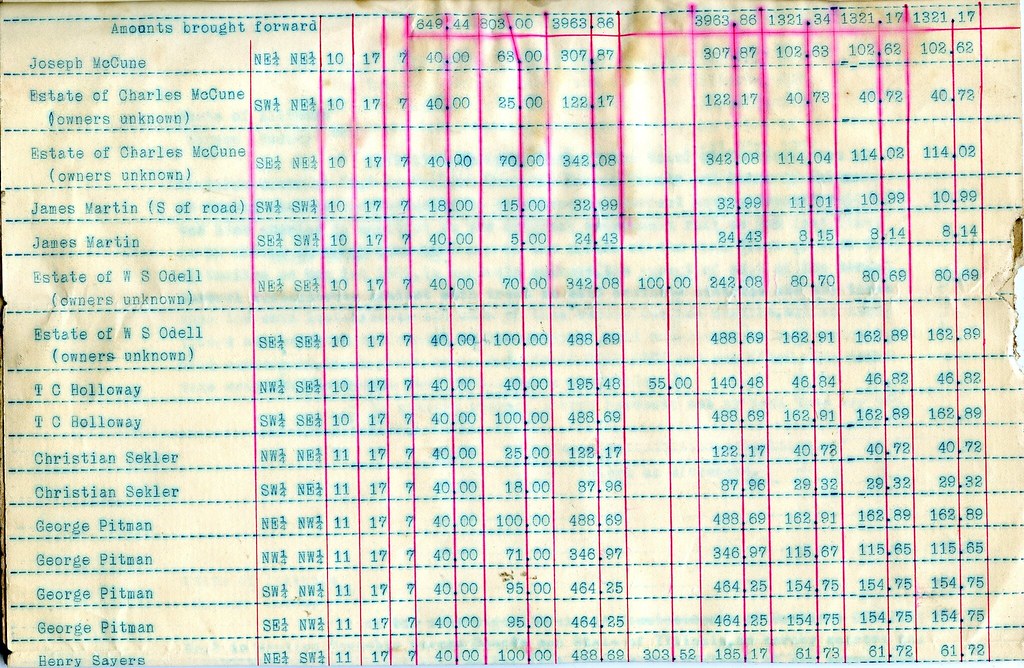 Amounts brought forward 649.44 803.00 3963.86 3963.86 1321.34 1321.17 1321.17
Joseph McCune NE¼ NE¼ 10 17 7 40.00 63.00 307.87 307.87 102.63 102.62 102.62
Estate of Charles McCune SW¼ NE¼ 10 17 7 40.00 25.00 122.17 122.17 40.73 40.72 40.72
(owners unknown)
Estate of Charles McCune SE¼ NE¼ 10 17 7 40.00 70.00 342.08 342.08 114.04 114.02 114.02
(owners unknown)
James Martin (S of road) SW¼ SW¼ 10 17 7 18.00 15.00 32.99 32.99 11.01 10.99 10.99
James Martin SE¼ SW¼ 10 17 7 40.00 5.00 24.43 24.43 8.15 8.14 8.14
Estate of W S Odell NE¼ SE¼ 10 17 7 40.00 70.00 342.08 100.00 242.08 80.70 80.69 80.69
(owners unknown)
Estate of W S Odell SE¼ SE¼ 10 17 7 40.00 100.00 488.69 488.69 162.91 162.89 162.89
(owners unknown)
T C Holloway NW¼ SE¼ 10 17 7 40.00 40.00 195.48 55.00 140.48 46.84 46.82 46.82
T C Holloway SW¼ SE¼ 10 17 7 40.00 100.00 488.69 488.69 162.91 162.89 162.89
Christian Sekler NW¼ NE¼ 11 17 7 40.00 25.00 122.17 122.17 40.73 40.72 40.72
Christian Sekler SW¼ NE¼ 11 17 7 40.00 18.00 87.96 87.96 29.32 29.32 29.32
George Pitman NE¼ NW¼ 11 17 7 40.00 100.00 488.69 488.69 162.91 162.89 162.89
George Pitman NW¼ NW¼ 11 17 7 40.00 71.00 346.97 346.97 115.67 115.65 115.65
George Pitman SW¼ NW¼ 11 17 7 40.00 95.00 464.25 464.25 154.75 154.75 154.75
George Pitman SE¼ NW¼ 11 17 7 40.00 95.00 464.25 464.25 154.75 154.75 154.75
Henry Sayers NE¼ SW¼ 11 17 7 40.00 100.00 488.69 303.52 185.17 61.73 61.72 61.72